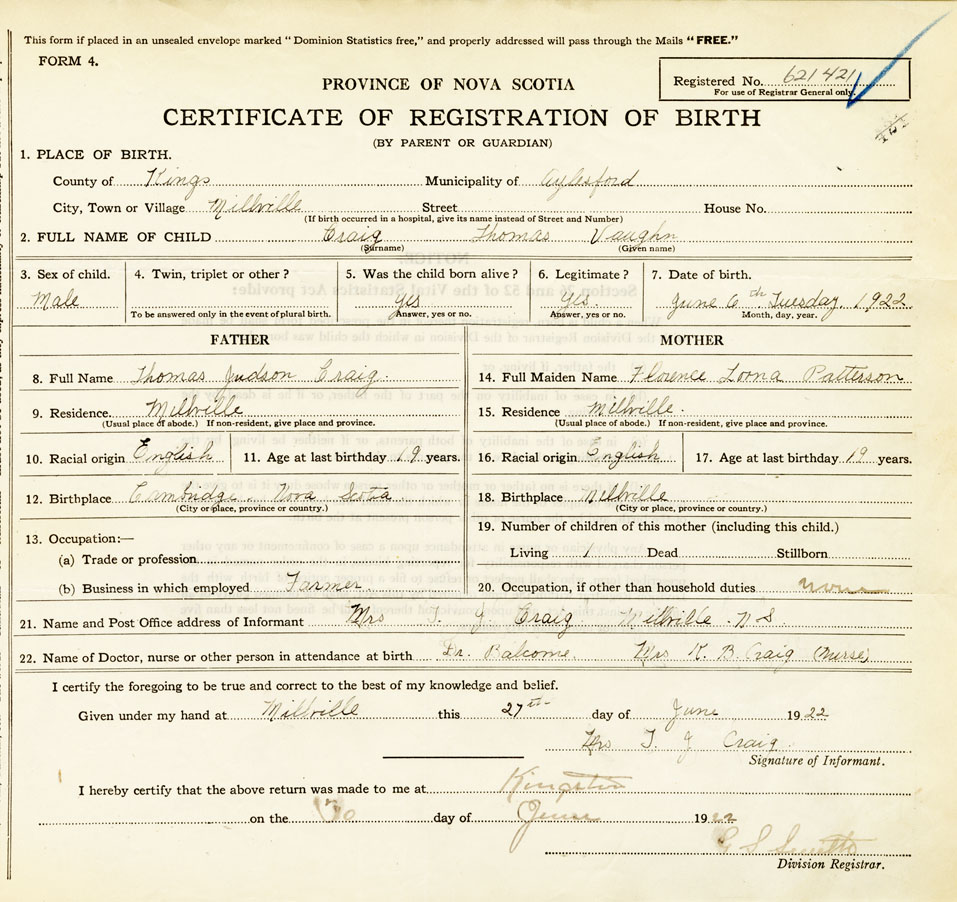 This form if placed in an unsealed envelope marked "Dominion Statistics free," and properly addressed will pass through the Mails "FREE."
FORM 4.
Registered No. 621421
For use of Registrar General only.
PROVINCE OF NOVA SCOTIA
CERTIFICATE OF REGISTRATION OF BIRTH
(BY PARENT OR GUARDIAN)
1. PLACE OF BIRTH.
County of Kings Municipality of Aylesford
City, Town or Village Millville Street House No.
(If birth occurred in a hospital, give its name instead of Street and Number)
2. FULL NAME OF CHILD Craig Thomas Vaughn
(Surname) (Given name)
3. Sex of child. 4. Twin, triplet or other? 5. Was the child born alive? 6. Legitimate? 7. Date of birth.
Male Yes Yes. June 6th Tuesday 1922
To be answered only in the event of plural birth. Answer, yes or no. Answer, yes or no. Month, day, year.
FATHER MOTHER
8. Full Name Thomas Judson Craig 14. Full Maiden Name Florence Loona Patterson
9. Residence. Millville 15. Residence Millville.
(Usual place of abode.) If non-resident, give place and province. (Usual place of abode.) If non-resident, give place and province.
10. Racial origin English 11. Age at last birthday 19 years. 16. Racial origin English 17. Age at last birthday 19 years.
12. Birthplace Cambridge. Nova Scotia 18. Birthplace Millville
(City or place, province or country.) (City or place, province or country.)
13. Occupation:— 19. Number of children of this mother (including this child.)
(a) Trade or profession Living 1 Dead Stillborn
(b) Business in which employed Farmer 20. Occupation, if other than household duties none
21. Name and Post Office address of Informant Mrs T. J Craig Millville N S
22. Name of Doctor, nurse or other person in attendance at birth Dr. Balcome. Mrs B. Craig (Nurse)
I certify the foregoing to be true and correct to the best of my knowledge and belief.
Given under my hand at Millville this 27th day of June 1922
Mrs T J Craig
Signature of Informant.
I hereby certify that the above return was made to me at Kingston
on the 30 day of June 1922
G S
Division Registrar.